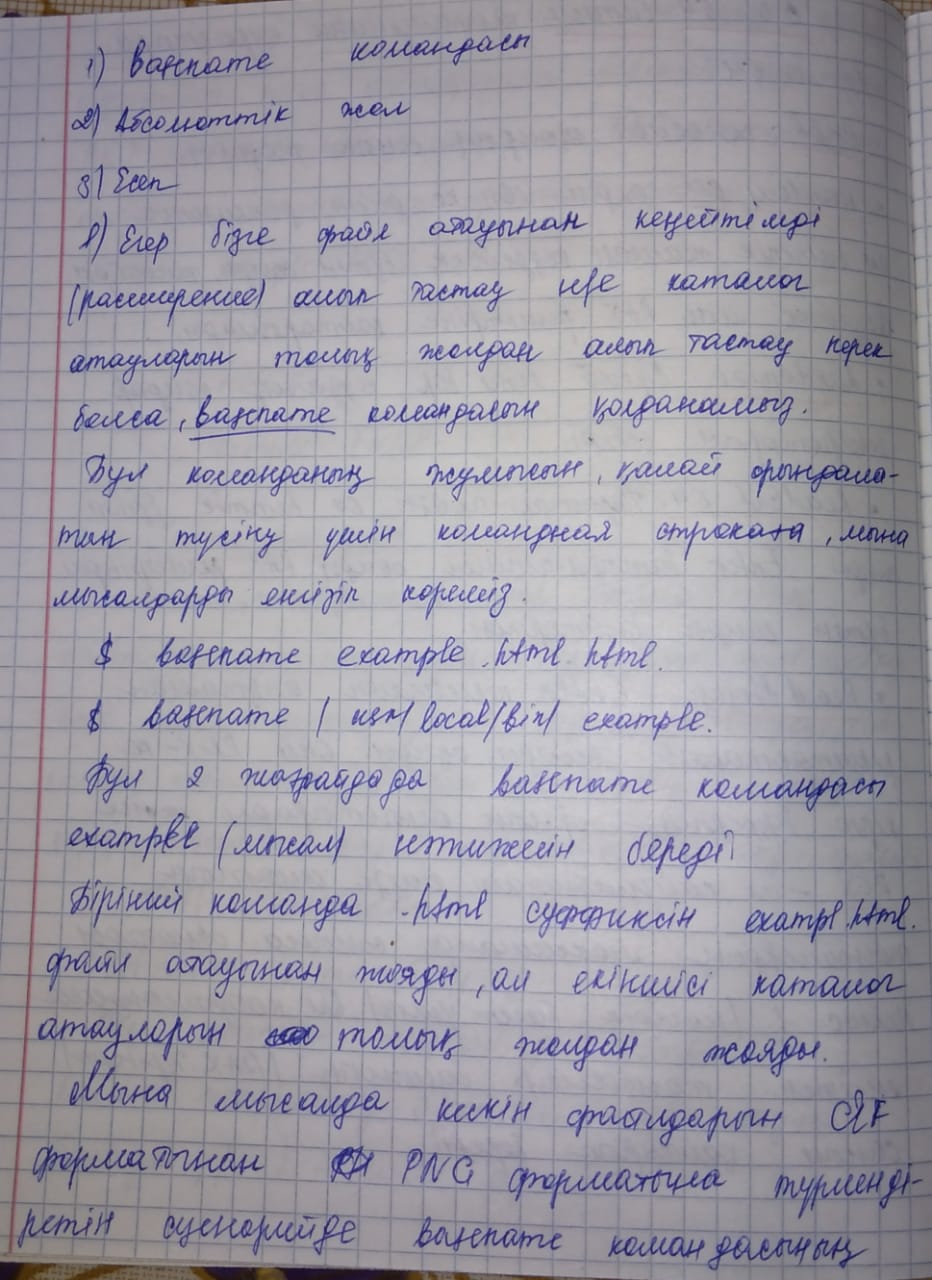 1) basename командасы
2) Абсолюттік жол
3) Есеп
1) Егер бізге файл атауынан кеңейтімді
(расширение) алып тастау н/е каталог
атауларын толық жолдан алып тастау керек
болса, basename командасын қолданамыз.
Бұл команданың жұмысын, қалай орындала-
тын түсіну үшін командная строката, мына
мысалдарды енгізіп көреміз.
$ basename example .html .html.
$ basename / usr/ local/bin/ example.
Бұл 2 жағдайда да basename командасы
example (мысал) нәтижесін береді
Бірінші команда .html суффиксін exampl.html.
файл атауынан жояды, ал екіншісі каталог
атауларын толық жолдан жояды.
Мына мысалда кескін файлдарын GIF
форматынан PNG форматына түрленді-
ретін сценарийде basename командасының